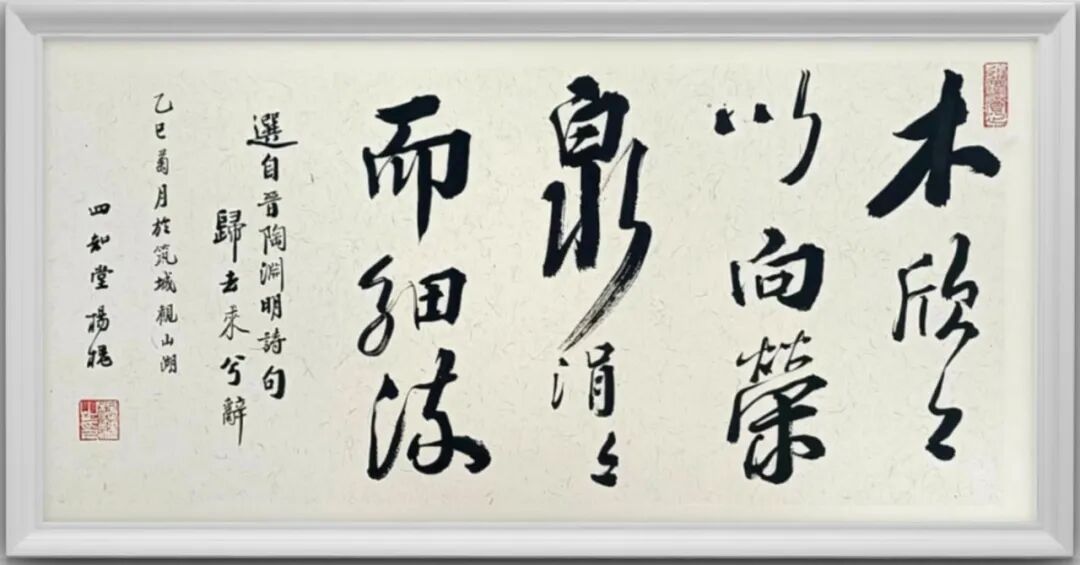 木欣々
以向榮
泉涓々
而細流
選自晉陶淵明詩句
歸去来兮辭
乙巳菊月於筑城觀山湖
四知堂楊